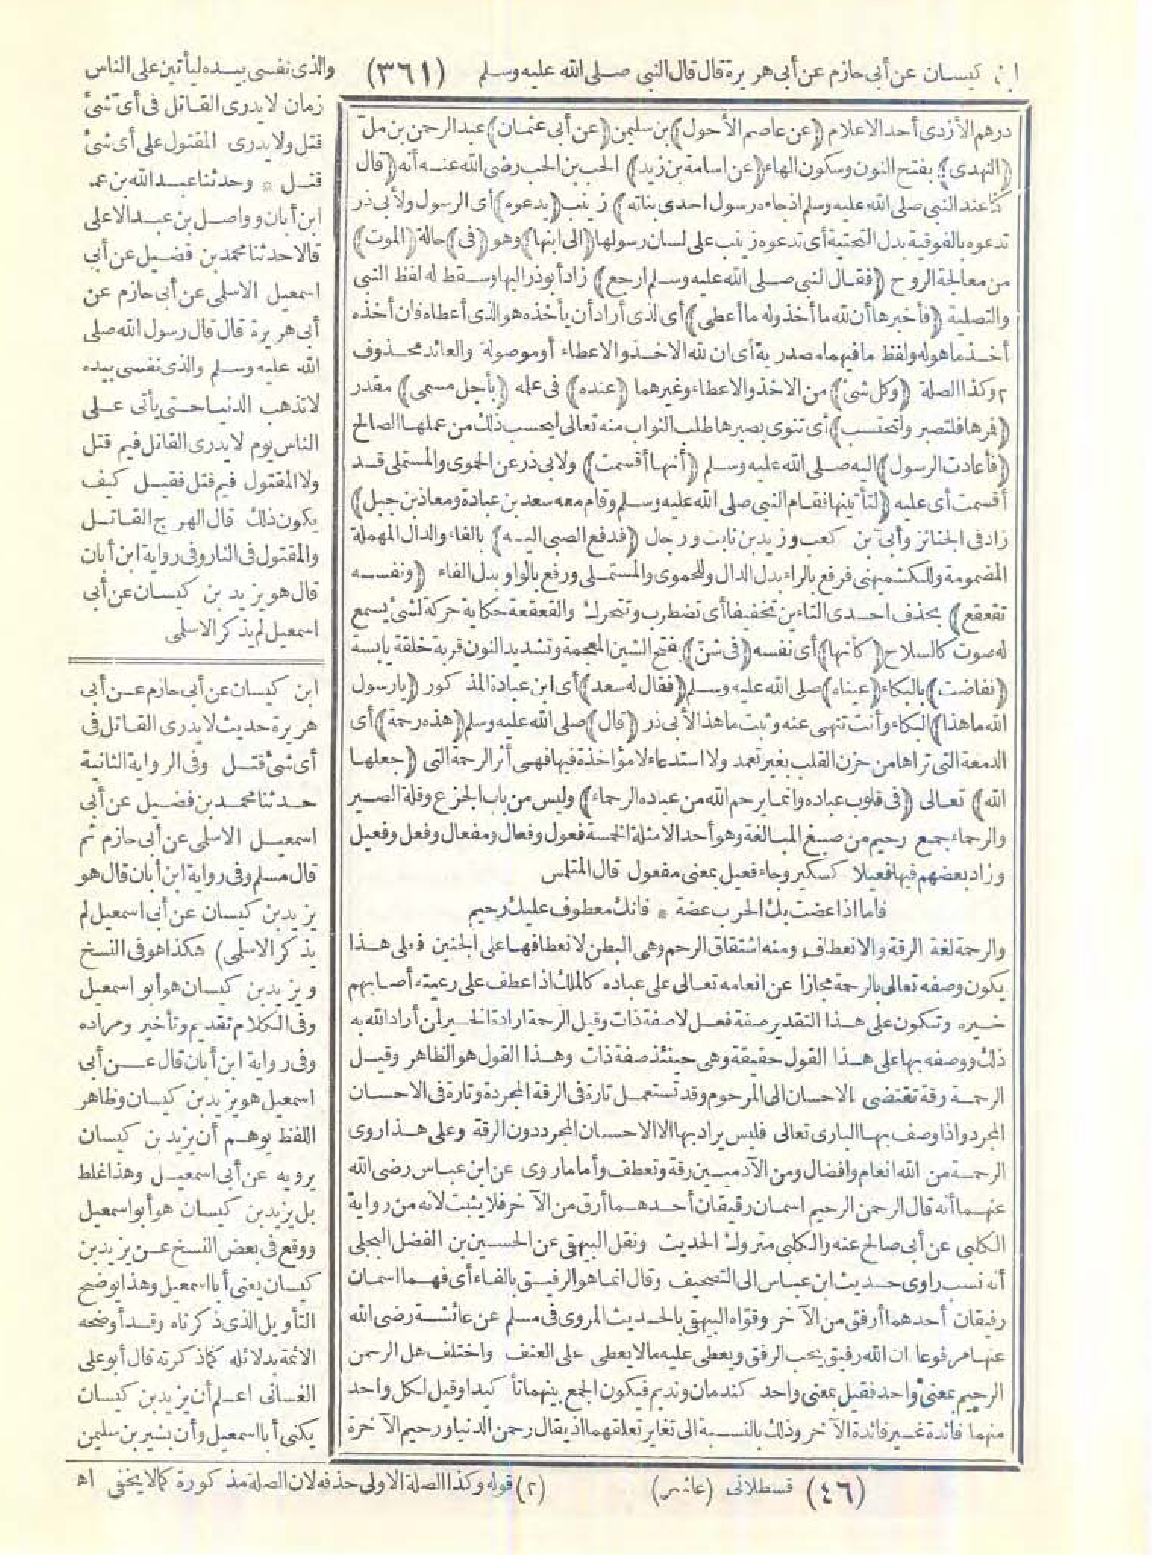 ابن كيسان عن أبى حازم عن أبى هريرة قال قال النبى صلى الله عليه وسلم (٣٦١) والذى نفسى بيده ليأتين على الناس
درهم الأزدى أحد الاعلام (عن عاصم الأحول) بن سليمن (عن أبى عثمان) عبد الرحمن بن ملّ
(النهدى) بفتح النون وسكون الهاء (عن اسامة بن زيد) الحب بن الحب رضى الله عنه أنه (قال
كنا عند النبى صلى الله عليه وسلم اذ جاءه رسول احدى بناته) زينب (يدعوه) أى الرسول ولأبى ذر
تدعوه بالفوقية بدل التحتية أى تدعوه زينب على لسان رسولها (الى ابنها) وهو (فى) حالة (الموت)
من معالجة الروح (فقال النبى صلى الله عليه وسلم ارجع) زاد أبو ذر اليها وسقط له لفظ النبى
والتصلية (فأخبرها أن لله ما أخذ وله ما أعطى) أى الذى أراد أن يأخذه هو الذى أعطاه فان أخذه
أخذ ما هو له ولفظ ما فيهما مصدرية أى ان لله الاخذ والاعطاء أو موصولة والعائد محذوف
٢ وكذا الصلة (وكل شئ) من الاخذ والاعطاء وغيرهما (عنده) فى علمه (بأجل مسمى) مقدر
(فمرها فلتصبر ولتحتسب) أى تنوى بصبرها طلب الثواب منه تعالى ليحسب ذلك من عملها الصالح
(فأعادت الرسول) اليه صلى الله عليه وسلم (أنها أقسمت) ولابى ذر عن الحموى والمستملى قد
أقسمت أى عليه (لتأتينها فقام النبى صلى الله عليه وسلم وقام معه سعد بن عبادة ومعاذ بن جبل)
زاد فى الجنائز وأبىّ بن كعب وزيد بن ثابت ورجال (فدفع الصبى اليه) بالفاء والدال المهملة
المضمومة وللكشميهنى فرفع بالراء بدل الدال وللحموى والمستملى ورفع بالواو بدل الفاء (ونفسه
تقعقع) بحذف احدى التاءين تخفيفا أى تضطرب وتتحرك والقعقعة حكاية حركة لشئ يسمع
له صوت كالسلاح (كأنها) أى نفسه (فى شنّ) بفتح الشين المعجمة وتشديد النون قربة خلقة يابسة
(ففاضت) بالبكاء (عيناه) صلى الله عليه وسلم (فقال له سعد) أى ابن عبادة المذكور (يا رسول
الله ما هذا) البكاء وأنت تنهى عنه وثبت ما هذا لأبى ذر (قال) صلى الله عليه وسلم (هذه رحمة) أى
الدمعة التى تراها من حزن القلب بغير تعمد ولا استدعاء لا مؤاخذة فيها فهى أثر الرحمة التى (جعلها
الله) تعالى (فى قلوب عباده وانما يرحم الله من عباده الرحماء) وليس من باب الجزع وقلة الصبر
والرحماء جمع رحيم من صيغ المبالغة وهو أحد الامثلة الخمسة فعول وفعال ومفعال وفعل وفعيل
وزاد بعضهم فيها فعيلا كسكير وجاء فعيل بمعنى مفعول قال المتلمس
فاما اذا عضت بك الحرب عضة * فانك معطوف عليك رحيم
والرحمة لغة الرقة والانعطاف ومنه اشتقاق الرحم وهى البطن لانعطافها على الجنين فعلى هذا
يكون وصفه تعالى بالرحمة مجازا عن انعامه تعالى على عباده كالملك اذا عطف على رعيته أصابهم
خيره وتكون على هذا التقدير صفة فعل لا صفة ذات وقيل الرحمة ارادة الخير لمن أراد الله به
ذلك ووصفه بها على هذا القول حقيقة وهى حينئذ صفة ذات وهذا القول هو الظاهر وقيل
الرحمة رقة تقتضى الاحسان الى المرحوم وقد تستعمل تارة فى الرقة المجردة وتارة فى الاحسان
المجرد واذا وصف بها البارى تعالى فليس يراد بها الا الاحسان المجرد دون الرقة وعلى هذا روى
الرحمة من الله انعام وافضال ومن الآدميين رقة وتعطف وأما ما روى عن ابن عباس رضى الله
عنهما أنه قال الرحمن الرحيم اسمان رقيقان أحدهما أرق من الآخر فلا يثبت لأنه من رواية
الكلبى عن أبى صالح عنه والكلبى متروك الحديث ونقل البيهقى عن الحسين بن الفضل البجلى
أنه نسب راوى حديث ابن عباس الى التصحيف وقال انما هو الرفيق بالفاء أى فهما اسمان
رفيقان أحدهما أرفق من الآخر وقواه البيهقى بالحديث المروى فى مسلم عن عائشة رضى الله
عنها مرفوعا ان الله رفيق يحب الرفق ويعطى عليه ما لا يعطى على العنف واختلف هل الرحمن
الرحيم بمعنى واحد فقيل بمعنى واحد كندمان ونديم فيكون الجمع بينهما تأكيدا وقيل لكل واحد
منهما فائدة غير فائدة الآخر وذلك بالنسبة الى تغاير تعلقهما اذ يقال رحمن الدنيا ورحيم الآخرة
زمان لا يدرى القاتل فى أىّ شئ
قتل ولا يدرى المقتول على أى شئ
قتل * وحدثنا عبد الله بن عمر
ابن أبان وواصل بن عبد الاعلى
قالا حدثنا محمد بن فضيل عن أبى
اسمعيل الاسلمى عن أبى حازم عن
أبى هريرة قال قال رسول الله صلى
الله عليه وسلم والذى نفسى بيده
لا تذهب الدنيا حتى يأتى على
الناس يوم لا يدرى القاتل فيم قتل
ولا المقتول فيم قتل فقيل كيف
يكون ذلك قال الهرج القاتل
والمقتول فى النار وفى رواية ابن أبان
قال هو يزيد بن كيسان عن أبى
اسمعيل لم يذكر الاسلمى
ابن كيسان عن أبى حازم عن أبى
هريرة حديث لا يدرى القاتل فى
أى شئ قتل وفى الرواية الثانية
حدثنا محمد بن فضيل عن أبى
اسمعيل الاسلمى عن أبى حازم ثم
قال مسلم وفى رواية ابن أبان قال هو
يزيد بن كيسان عن أبى اسمعيل لم
يذكر الاسلمى) هكذا هو فى النسخ
ويزيد بن كيسان هو أبو اسمعيل
وفى الكلام تقديم وتأخير ومراده
وفى رواية ابن أبان قال عن أبى
اسمعيل هو يزيد بن كيسان وظاهر
اللفظ يوهم أن يزيد بن كيسان
يرويه عن أبى اسمعيل وهذا غلط
بل يزيد بن كيسان هو أبو اسمعيل
ووقع فى بعض النسخ عن يزيد بن
كيسان يعنى أبا اسمعيل وهذا يوضح
التأويل الذى ذكرناه وقد أوضحه
الائمة بدلائله كما ذكرته قال أبو على
الغسانى اعلم أن يزيد بن كيسان
يكنى أبا اسمعيل وأن بشير بن سليمن
(٤٦) قسطلانى (عاشر) (٢) قوله وكذا الصلة الاولى حذفه لان الصلة مذكورة كما لا يخفى اه